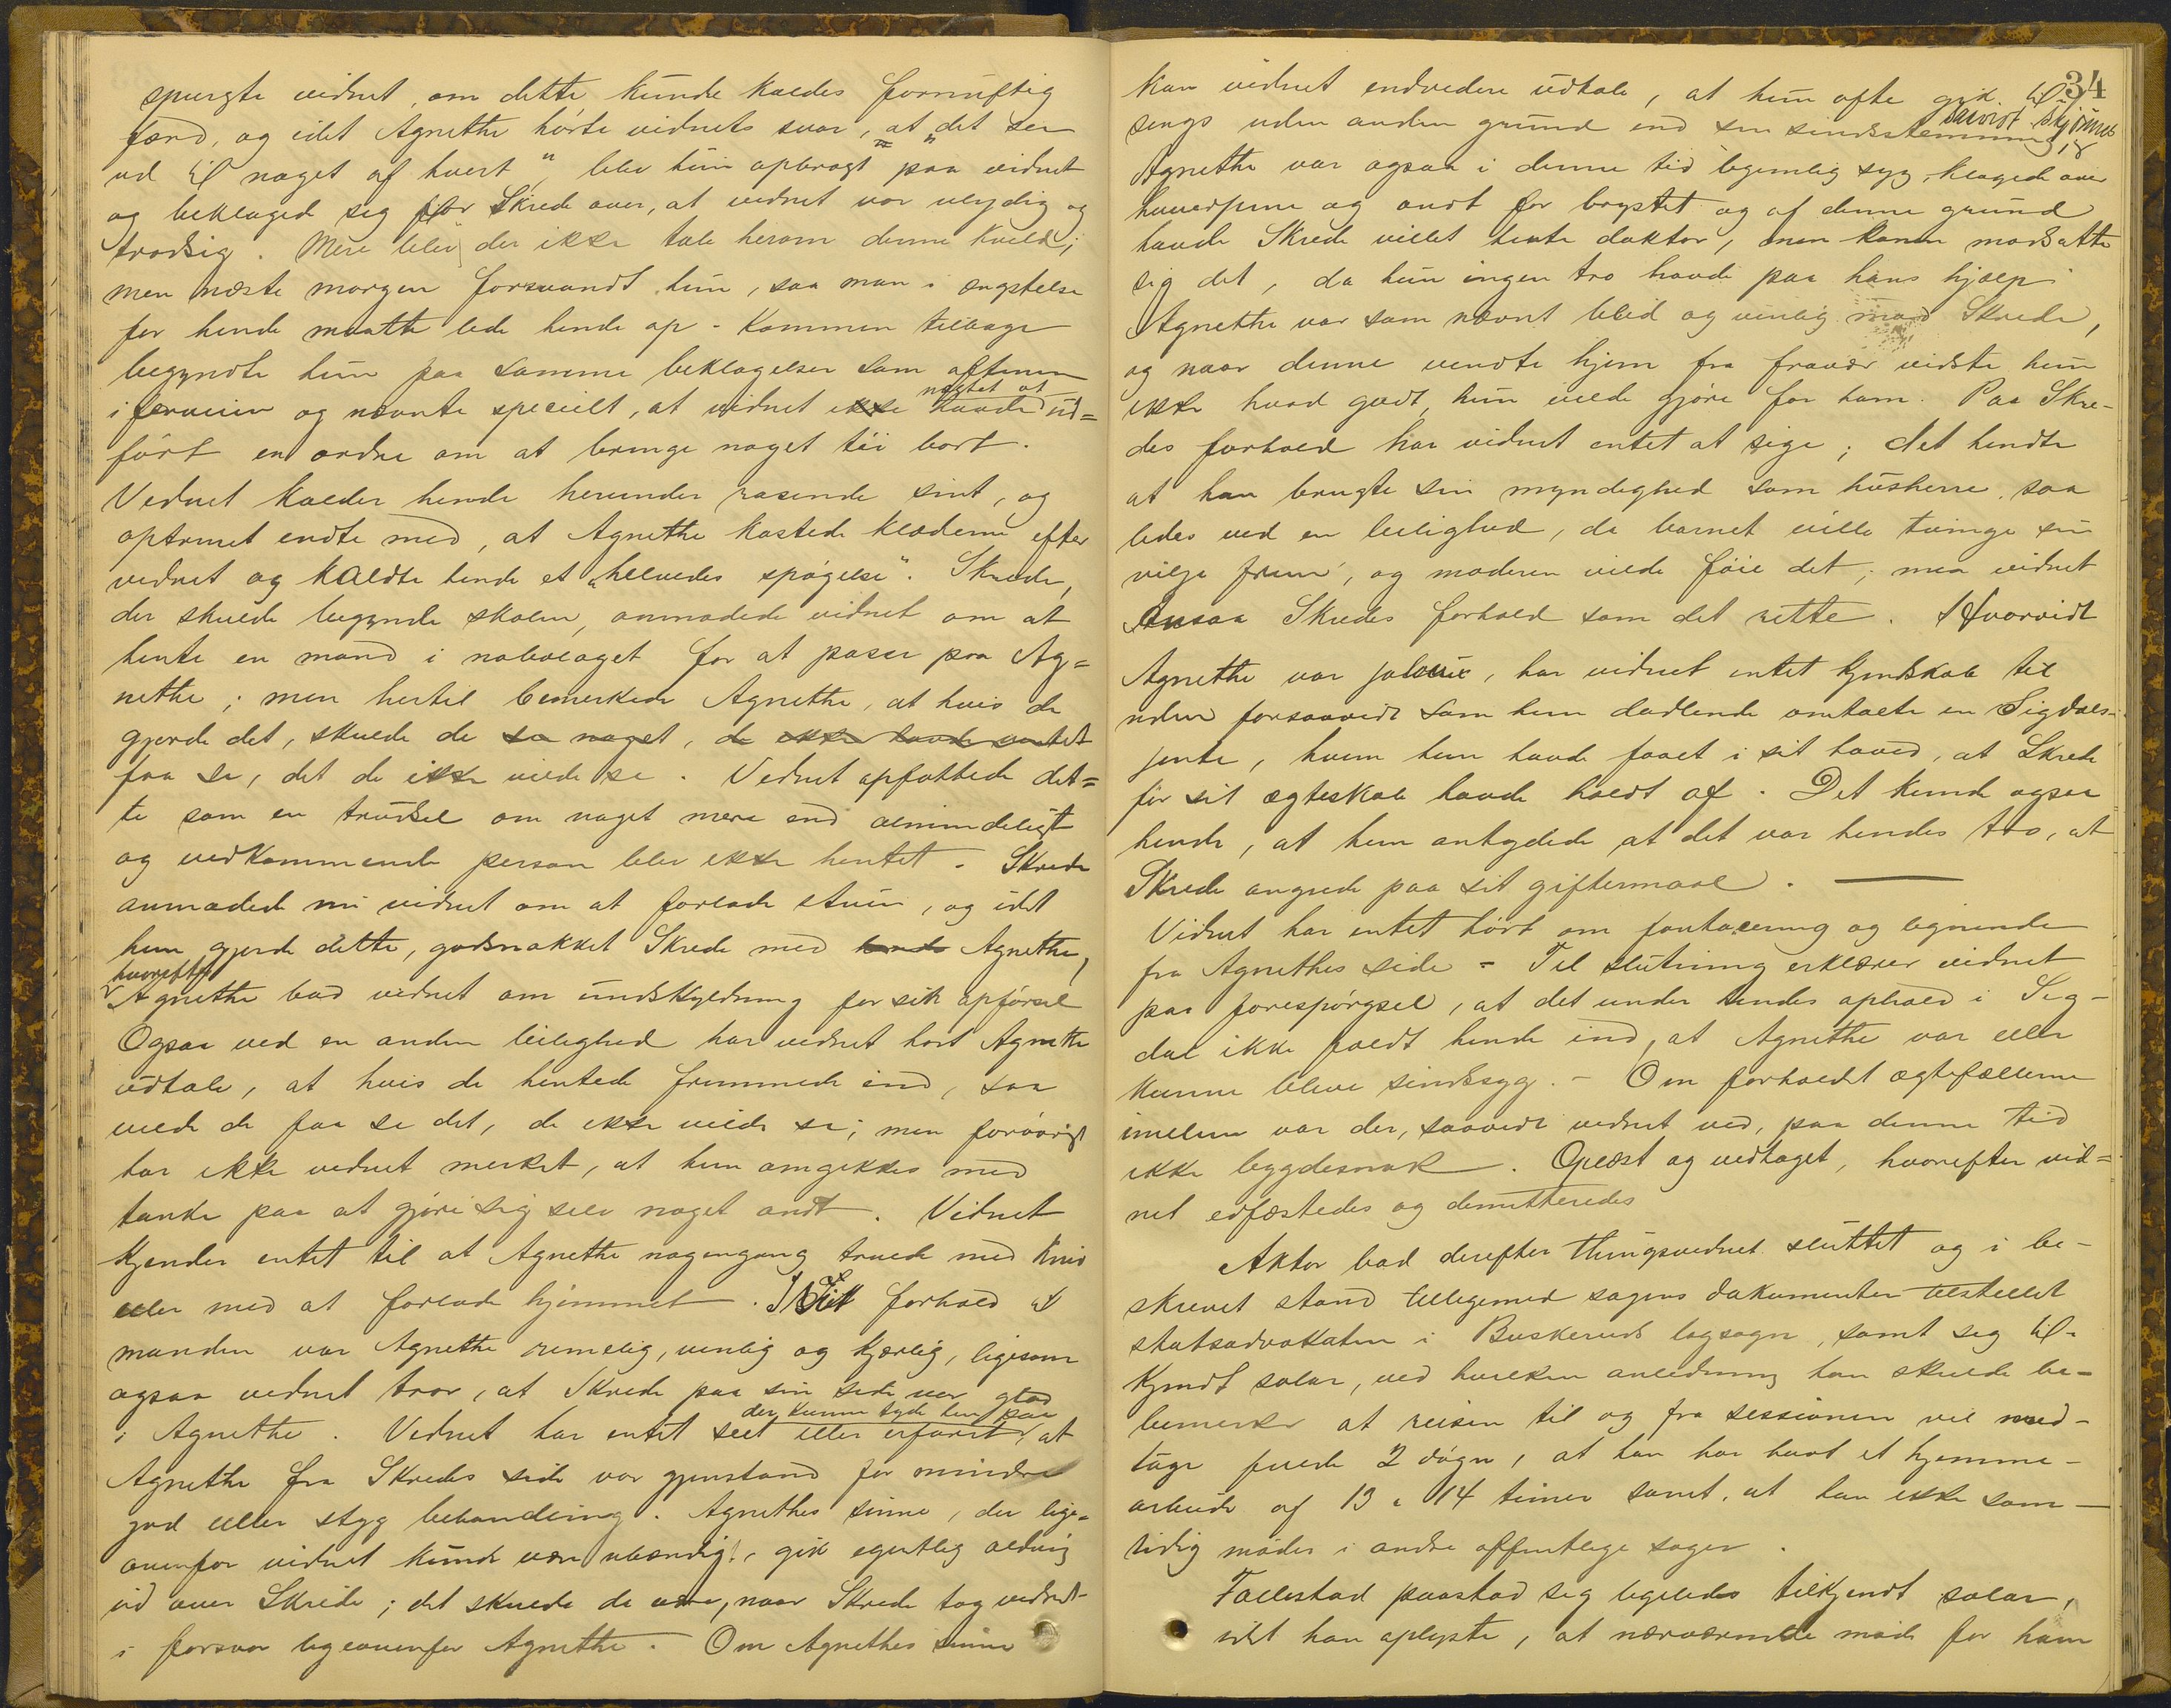 spurgte vidnet, om dette kunde kaldes fornuftig
færd, og idet Agnethe hørte vidnets svar, at "det ser
ud til noget af hvert", blev hun opbragt paa vidnet
og beklaged sig for Skrede over, at vidnet var ulydig og
trodsig. Mere blev der ikke tale herom denne kveld;
men næste morgen forsvandt hun, saa man i ængstelse
for hende maatte lede hende op. Kommen tilbage
begyndte hun paa samme beklagelser som aftenen
iforveien og nævnte specielt, at vidnet ikke havde nægtet at ud=
ført en ordre om at bringe noget tøi bort.
Vidnet kalder hende herunder rasende sint, og
optrinet endte med, at Agnethe kastede klæderne efter
vidnet og kaldte hende et "helvedes spøgelse". Skrede,
der skulde begynde skolen, anmodede vidnet om at
hente en mand i nabolaget for at passe paa Ag=
nethe; men hertil bemerkede Agnethe, at hvis de
gjorde det, skulde de se noget, de ikke havde ventet
faa se, det de ikke vilde se. Vidnet opfattede det=
te som en trudsel om noget mere end almindeligt
og vedkommende person blev ikke hentet. Skrede
anmodede nu vidnet om at forlade stuen, og idet
hun gjorde dette, godsnakket Skrede med hende Agnethe,
hvorefter
Agnethe bad vidnet om undskyldning for sin opførsel
Ogsaa ved en anden leilighed har vidnet hørt Agnethe
udtale, at hvis de hentede fremmede ind, saa
vilde de faa se det, de ikke vilde se; men forøvrigt
har ikke vidnet merket, at hun omgikkes med
tanke paa at gjøre sig selv noget ondt. Vidnet
kjender intet til at Agnethe nogengang truede med kniv
eller med at forlade hjemmet. I sit forhold til
manden var Agnethe rimelig, venlig og kjærlig, ligesom
ogsaa vidnet tror, at Skrede paa sin side var glad
der kunne tyde hen paa
i Agnethe. Vidnet har intet seet eller erfaret, at
Agnethe fra Skredes side var gjenstand for mindre
god eller styg behandling. Agnethes sinne, der lige=
ovenfor vidnet kunde være ubændigt, gik egentlig aldrig
ud over Skrede; det skulde da være, naar Skrede tog vidnet
i forsvar ligeovenfor Agnethe. Om Agnethes sinne
34
kan vidnet endvidere udtale, at hun ofte gik til
saavidt skjønnes
sengs uden anden grund end sin sindsstemning,
Agnethe var ogsaa i denne tid legemlig syg, klagede over
hovedpine og ondt for brystet og af denne grund
havde Skrede villet hente doktor, men konen modsatte
sig det, da hun ingen tro havde paa hans hjælp
Agnethe var som nævnt blid og venlig mod Skrede,
og naar denne vendte hjem fra fravær vidste hun
ikke hvad godt hun vilde gjøre for ham. Paa Skre-
des forhold har vidnet intet at sige; det hendte
at han brugte sin myndighed som husherre, saa
ledes ved en leilighed, da barnet ville tvinge sin
vilje frem, og moderen vilde føie det; men vidnet
ansaa Skredes forhold som det rette. Hvorvidt
Agnethe var jaloux, har vidnet intet kjendskab til
uden forsaavidt som hun dadlende omtalte en Sigdals-
jente, hvem hun havde faaet i sit hoved, at Skrede
før sit ægteskab havde holdt af. Det kunde ogsaa
hende, at hun antydede at det var hendes tro, at
Skrede angrede paa sit giftermaal.
Vidnet har intet hørt om fantasering og lignende
fra Agnethes side - Til slutning erklærer vidnet
paa forespørgsel, at det under hendes ophold i Sig-
dal ikke faldt hende ind, at Agnethe var eller
kunne blive sindssyg. - Om forholdet ægtefællerne
imellem var der, saavidt vidnet ved, paa denne tid
ikke bygdesnak. Oplæst og vedtaget, hvorefter vid=
net edfæstedes og demitteredes
Aktor bad derefter thingsvidnet sluttet og i be-
skrevet stand tilligemed sagens dokumenter tilstillet
statsadvokaten i Buskeruds lagsogn, samt sig til-
kjendt salær, ved hvilken anledning han skulde be-
bemerke at reisen til og fra sessionen vil med-
tage fulde 2 døgn, at han har havt et hjemme-
arbeide af 13 a 14 timer samt, at han ikke sam-
tidig møder i andre offentlige sager.
Tallestad paastod sig ligeledes tilkjendt salær,
idet han oplyste, at nærværende møde for ham